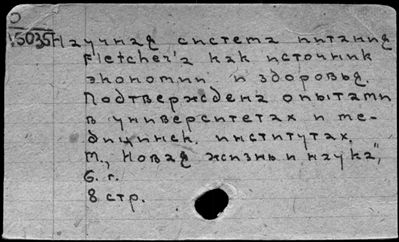 5035 Научная система питания
Fletcher'a как источник
экономии и здоровья.
Подтверждена опытами
в университетах и ме-
дицинск. институтах.
М., "Новая жизнь и наука",
б. г.
8 стр.